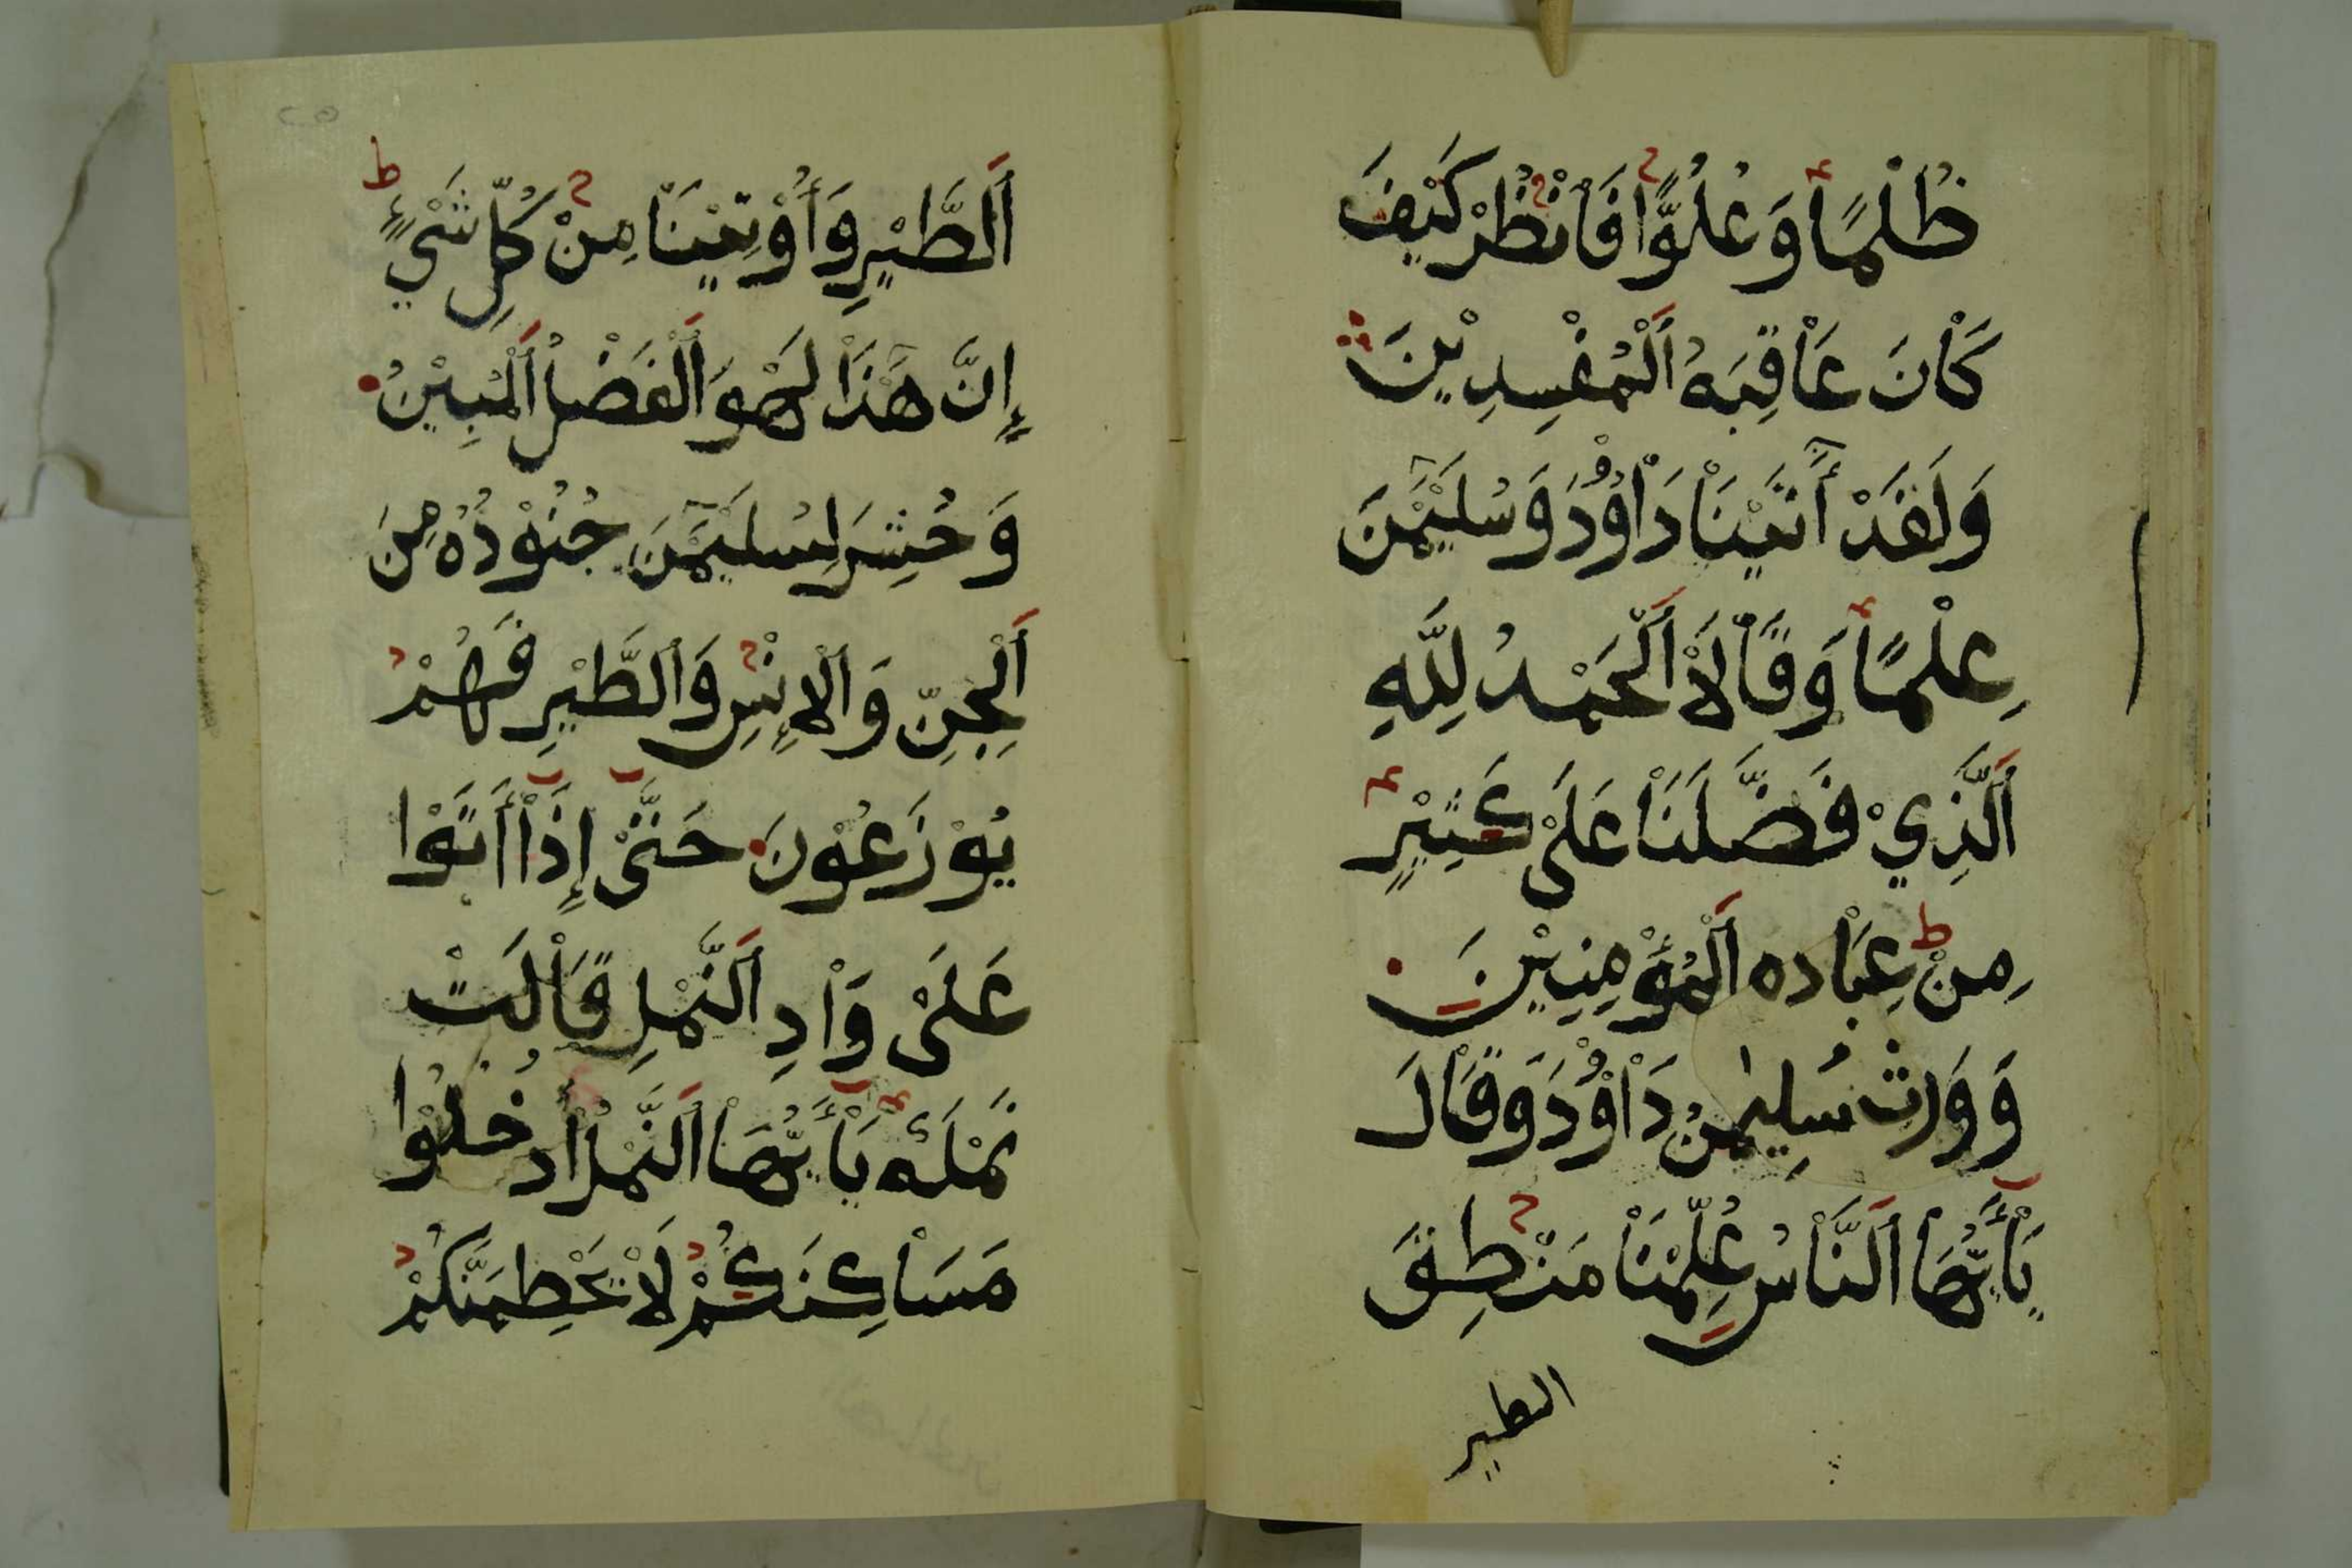 ظُلْمًا وَعُلُوًّا فَانْظُرْ كَيْفَ
كَانَ عَاقِبَةُ الْمُفْسِدِيْنَ
وَلَقَدْ أٰتَيْنَا دَاوُٗدَ وَسُلَيْمٰنَ
عِلْمًا وَقَالَا الْحَمْدُ لِلّٰهِ
الَّذِيْ فَضَّلَنَا عَلَىْ كَثِيْرٍ
مِنْ عِبَاده الْمُؤْمِنِيْنَ
وَوَرِثَ سُلِيمٰنُ دَاوُٗدَ وَقَالَ
يَأَيُّهَا النَّاسُ عُلِّمْنَا مَنْطِقَ
الطير
اَلطَّيْرِ وَأُوْتِيْنَا مِنْ كُلِّ شَيْءٍ
إِنَّ هٰذَا لَهُوَ الْفَضْلُ الْمُبِيْنُ
وَحُشِرَ لِسُلَيْمٰنَ جُنُوْدُهُ مِنَ
اَلْجِنِّ وَالْإِنْسِ وَالطَّيْرِ فَهُمْ
يُوْزَعُوْنَ حَتَّىْ إِذَا أَتَوْا
عَلَىْ وَادِ النَّمْلِ قَالَتْ
نَمْلَةٌ يَأَيُّهَا النَّمْلُ ادْخُلُوْا
مَسَاكِنَكُمْ لَا يَحْطِمَنَّكُمْ